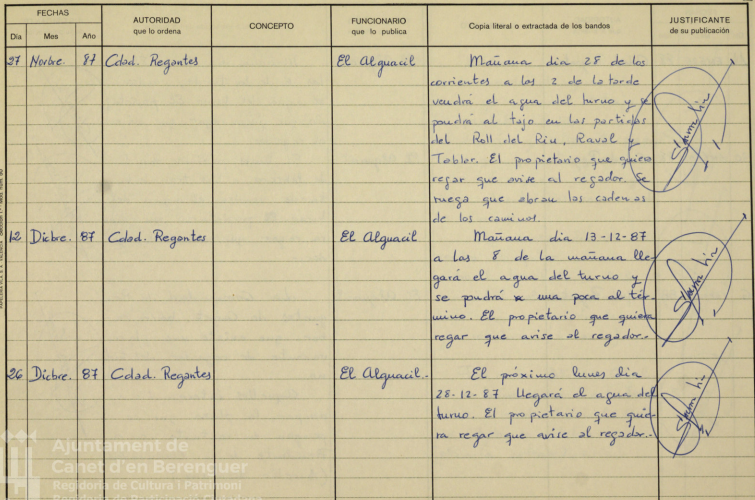 FECHAS
Día Mes Año
AUTORIDAD
que lo ordena
CONCEPTO
FUNCIONARIO
que lo publica
Copia literal o extractada de los bandos
JUSTIFICANTE
de su publicación
27 Novbre. 87 Cdad. Regantes El Alguacil Mañana dia 28 de los
corrientes a las 2 de la tarde
vendrá el agua del turno y se
pondrá al tajo en las partidas
del Roll del Riu, Raval y
Tablar. El propietario que quiera
regar que avise al regador. Se
ruega que abran las cadenas
de los caminos.
12 Dicbre. 87 Cdad. Regantes El Alguacil Mañana dia 13-12-87
a las 8 de la mañana lle-
gará el agua del turno y
se pondrá una poca al tér-
mino. El propietario que quiera
regar que avise al regador.-
26 Dicbre. 87 Cdad. Regantes El Alguacil.- El próximo lunes dia
28-12-87 llegará el agua del
turno. El propietario que quie-
ra regar que avise al regador.-
Ajuntament de
Canet d'en Berenguer
Regidoria de Cultura i Patrimoni